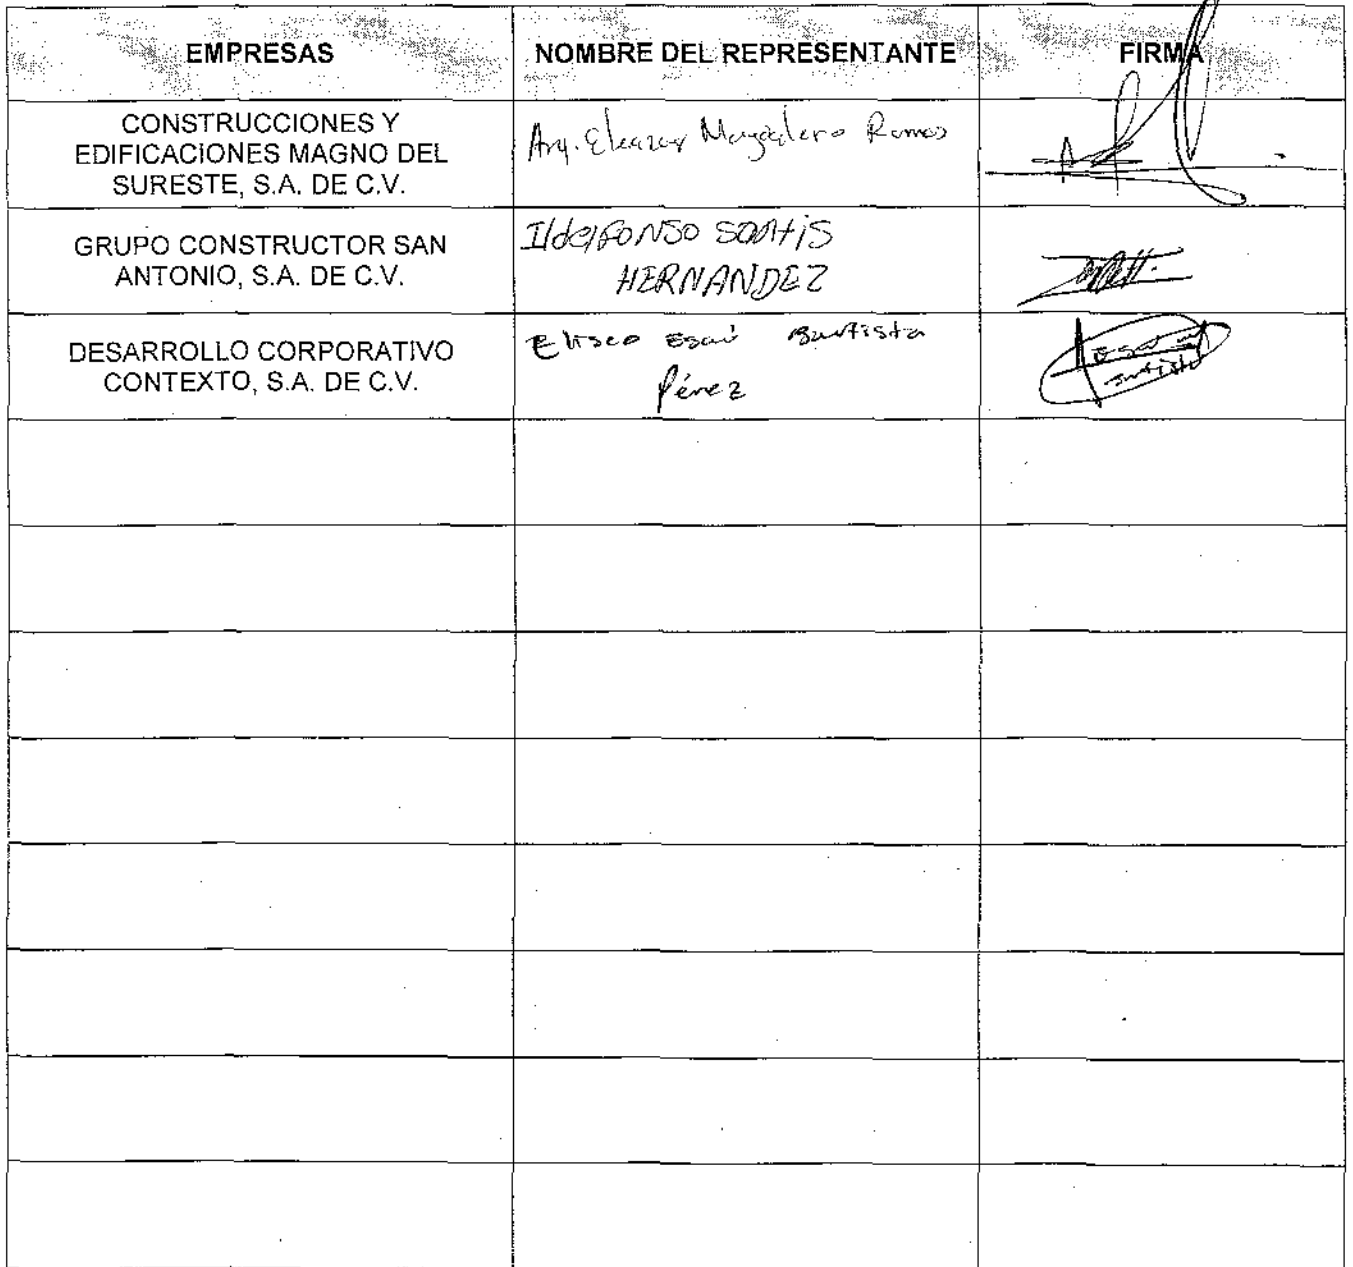 EMPRESAS
NOMBRE DEL REPRESENTANTE
FIRMA
CONSTRUCCIONES Y
EDIFICACIONES MAGNO DEL
SURESTE, S.A. DE C.V.
Arq. Eleazar Magdaleno Ramos
GRUPO CONSTRUCTOR SAN
ANTONIO, S.A. DE C.V.
Ildelfonso Santis
HERNANDEZ
DESARROLLO CORPORATIVO
CONTEXTO, S.A. DE C.V.
Eliseo Esaú Bautista
Pérez